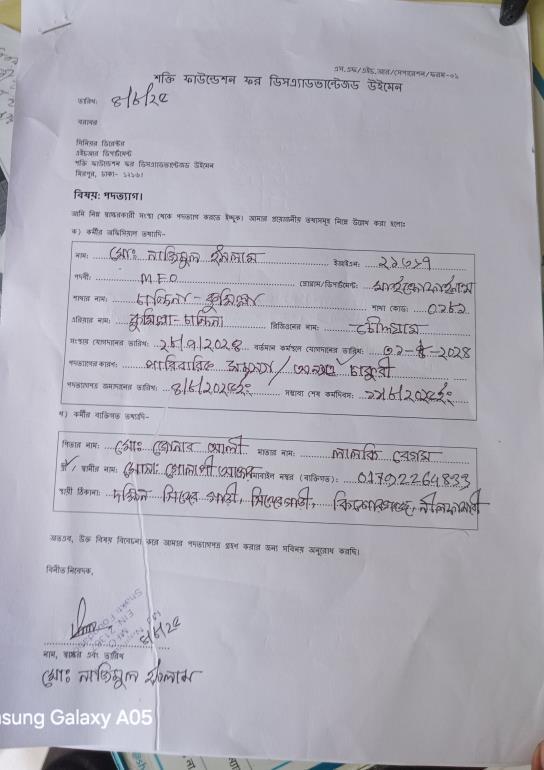 এস.এফ/এইচ.আর/সেপারেশন/ফরম-০১
শক্তি ফাউন্ডেশন ফর ডিসএ্যাডভান্টেজড উইমেন
তারিখ: ৪/৮/২৫
বরাবর
সিনিয়র ডিরেক্টর
এইচআর ডিপার্টমেন্ট
শক্তি ফাউন্ডেশন ফর ডিসএ্যাডভান্টেজড উইমেন
মিরপুর, ঢাকা- ১২১৬।
বিষয়: পদত্যাগ।
আমি নিম্ন স্বাক্ষরকারী সংস্থা থেকে পদত্যাগ করতে ইচ্ছুক। আমার প্রয়োজনীয় তথ্যসমূহ নিম্নে উল্লেখ করা হলোঃ
ক) কর্মীর অফিসিয়াল তথ্যাদি-
নাম: মোঃ নাজিমুল ইসলাম
পদবী: M.F.O প্রোগ্রাম/ডিপার্টমেন্ট: মাইক্রোফাইন্যান্স
শাখার নাম: চান্দিনা - কুমিল্লা শাখা কোড:
এরিয়ার নাম: কুমিল্লা - চান্দিনা রিজিওনের নাম:
সংস্থায় যোগদানের তারিখ: বর্তমান কর্মস্থলে যোগদানের তারিখ:
পদত্যাগের কারণ: পারিবারিক / অন্যত্র চাকুরী
পদত্যাগপত্র জমাদানের তারিখ: ৪/৮/২০২৫ইং সম্ভাব্য শেষ কর্মদিবস:
খ) কর্মীর ব্যক্তিগত তথ্যাদি-
পিতার নাম: মোঃ আলী মাতার নাম: লালকি বেগম
স্ত্রী/স্বামীর নাম: মোবাইল নম্বর (ব্যক্তিগত): 01792264833
স্থায়ী ঠিকানা: দক্ষিন কিশোরগঞ্জ, নীলফামারী
অতএব, উক্ত বিষয় বিবেচনা করে আমার পদত্যাগপত্র গ্রহণ করার জন্য সবিনয় অনুরোধ করছি।
বিনীত নিবেদক,
৪/৮/২৫
নাম, স্বাক্ষর এবং তারিখ
মোঃ নাজিমুল ইসলাম
sung Galaxy A05